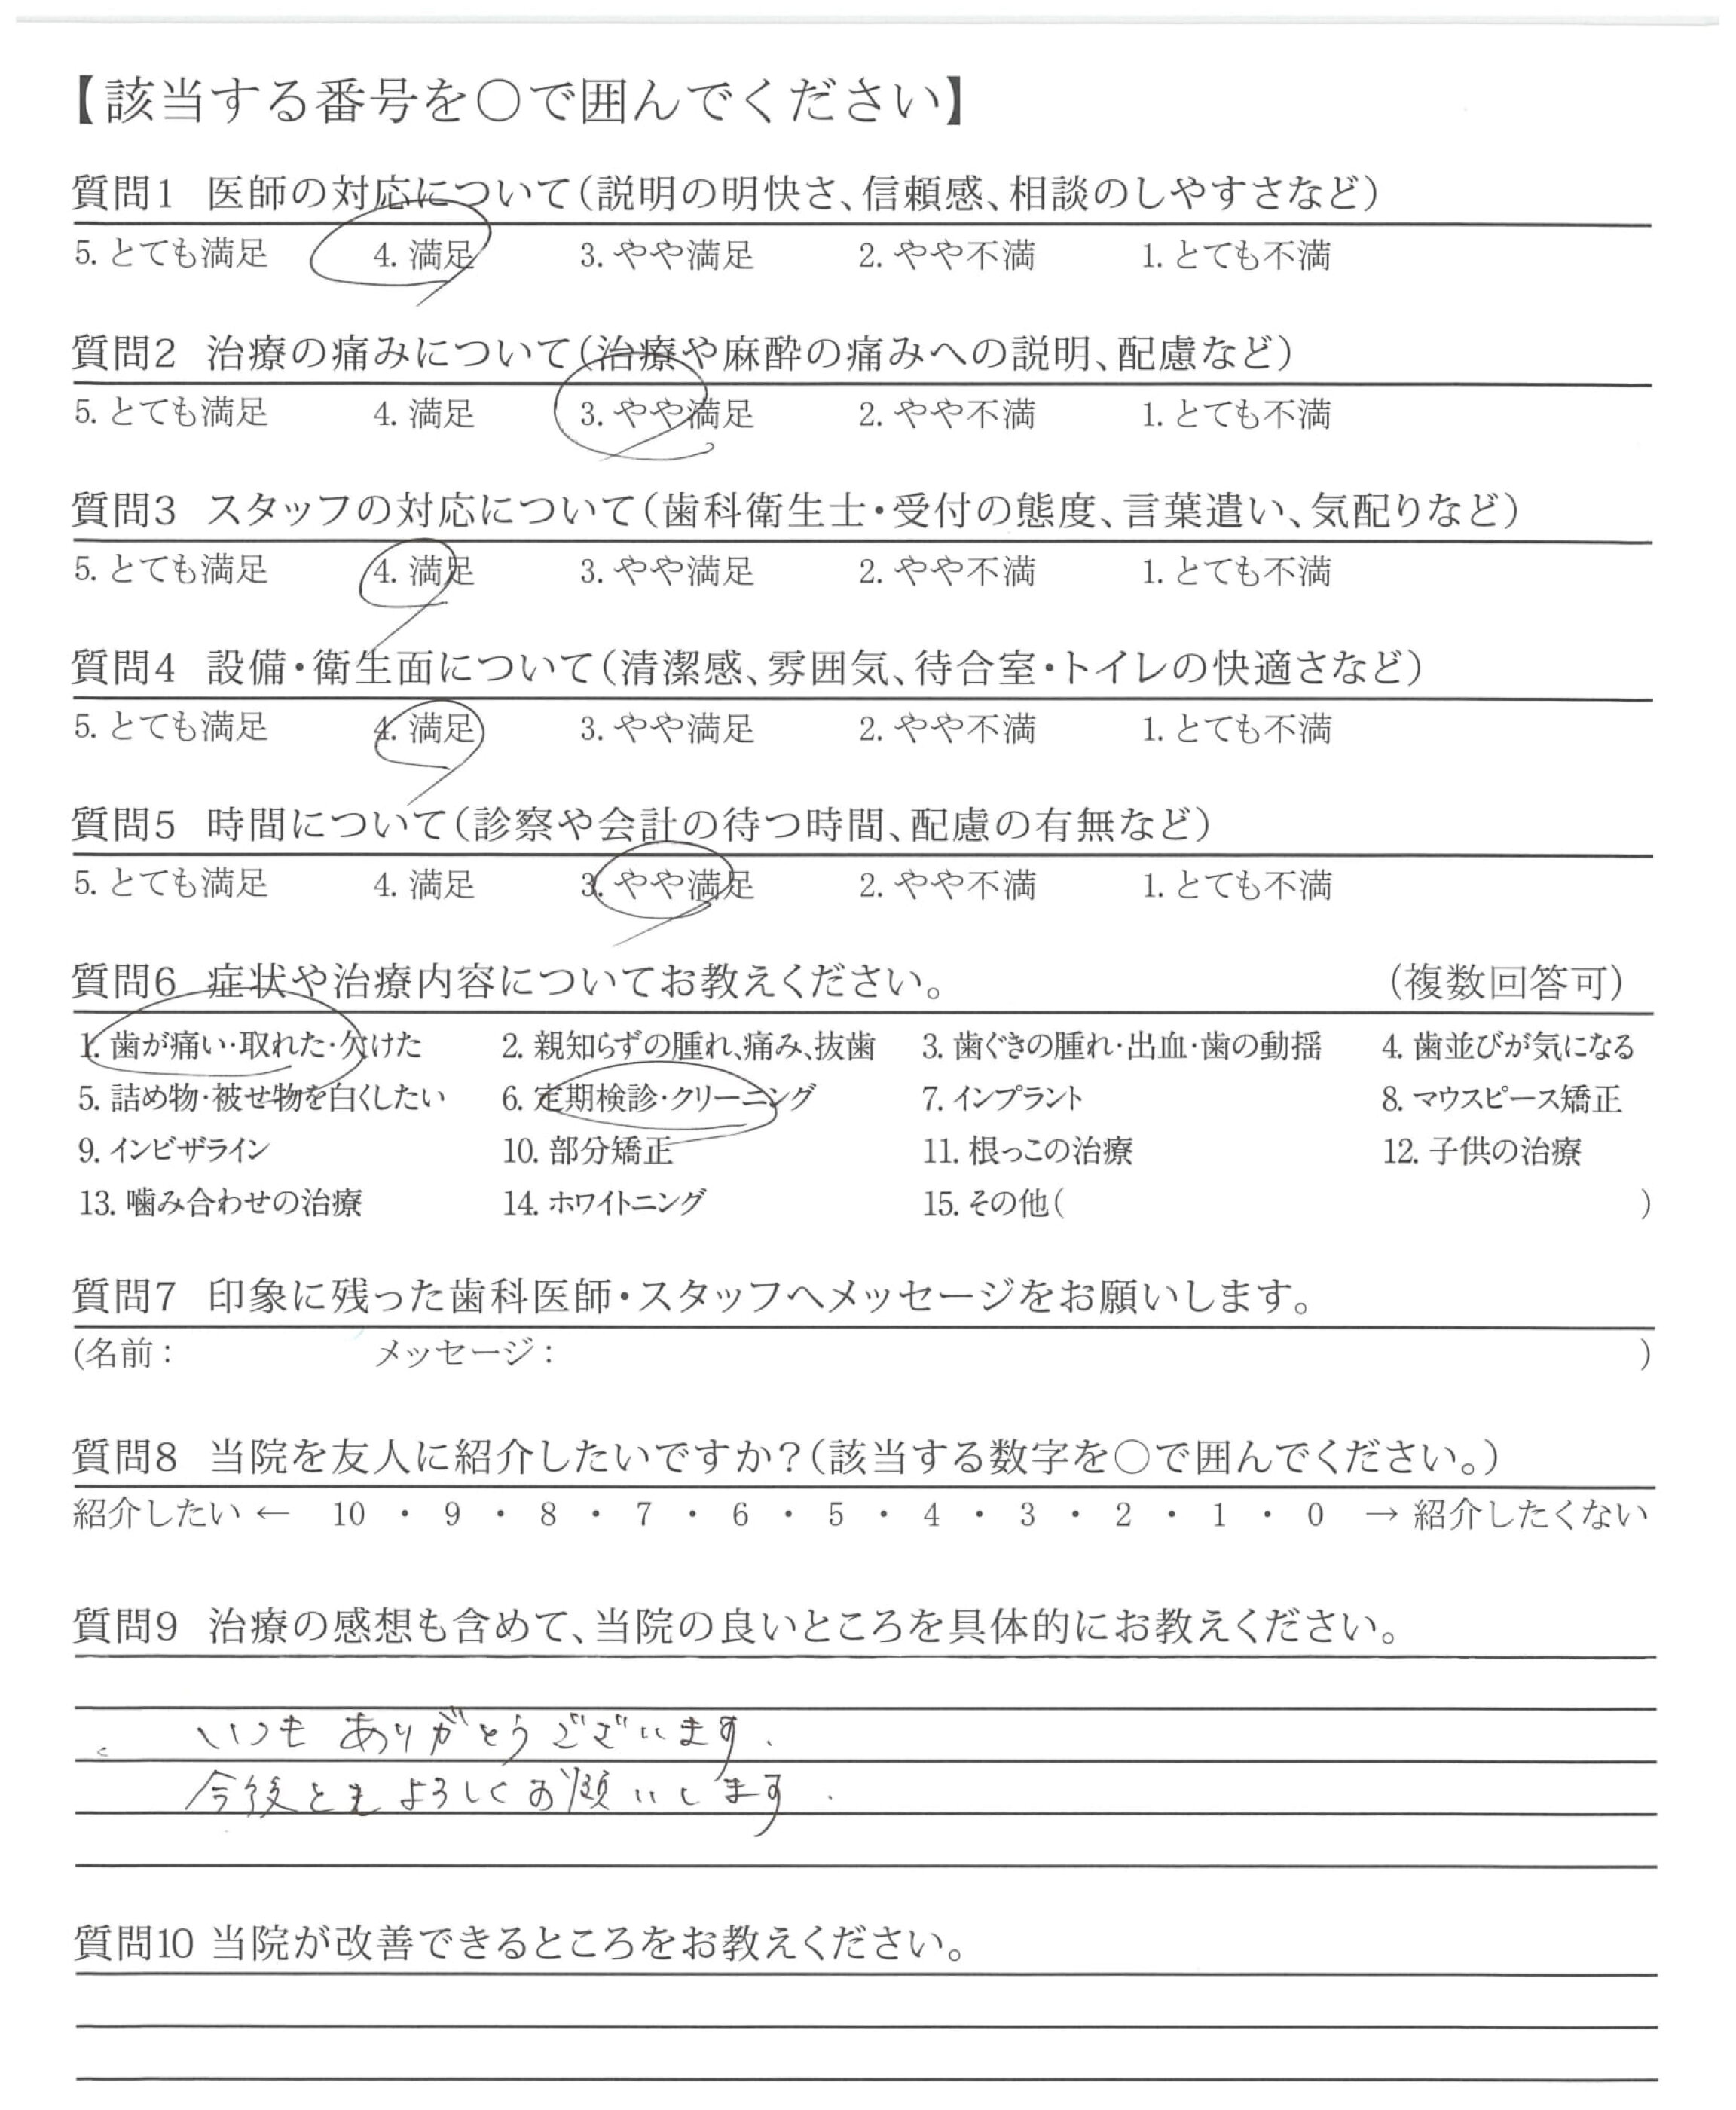 【該当する番号を○で囲んでください】
質問1 医師の対応について(説明の明快さ、信頼感、相談のしやすさなど)
5. とても満足 4. 満足 3. やや満足 2. やや不満 1. とても不満
質問2 治療の痛みについて(治療や麻酔の痛みへの説明、配慮など)
5. とても満足 4. 満足 3. やや満足 2. やや不満 1. とても不満
質問3 スタッフの対応について(歯科衛生士・受付の態度、言葉遣い、気配りなど)
5. とても満足 4. 満足 3. やや満足 2. やや不満 1. とても不満
質問4 設備・衛生面について(清潔感、雰囲気、待合室・トイレの快適さなど)
5. とても満足 4. 満足 3. やや満足 2. やや不満 1. とても不満
質問5 時間について(診察や会計の待つ時間、配慮の有無など)
5. とても満足 4. 満足 3. やや満足 2. やや不満 1. とても不満
質問6 症状や治療内容についてお教えください。 (複数回答可)
1. 歯が痛い・取れた・欠けた 2. 親知らずの腫れ、痛み、抜歯 3. 歯ぐきの腫れ・出血・歯の動揺 4. 歯並びが気になる
5. 詰め物・被せ物を白くしたい 6. 定期検診・クリーニング 7. インプラント 8. マウスピース矯正
9. インビザライン 10. 部分矯正 11. 根っこの治療 12. 子供の治療
13. 噛み合わせの治療 14. ホワイトニング 15. その他( )
質問7 印象に残った歯科医師・スタッフへメッセージをお願いします。
(名前: メッセージ: )
質問8 当院を友人に紹介したいですか?(該当する数字を○で囲んでください。)
紹介したい ← 10 ・ 9 ・ 8 ・ 7 ・ 6 ・ 5 ・ 4 ・ 3 ・ 2 ・ 1 ・ 0 → 紹介したくない
質問9 治療の感想も含めて、当院の良いところを具体的にお教えください。
いつも ありがとうございます.
今後とも よろしくお願いします.
質問10 当院が改善できるところをお教えください。